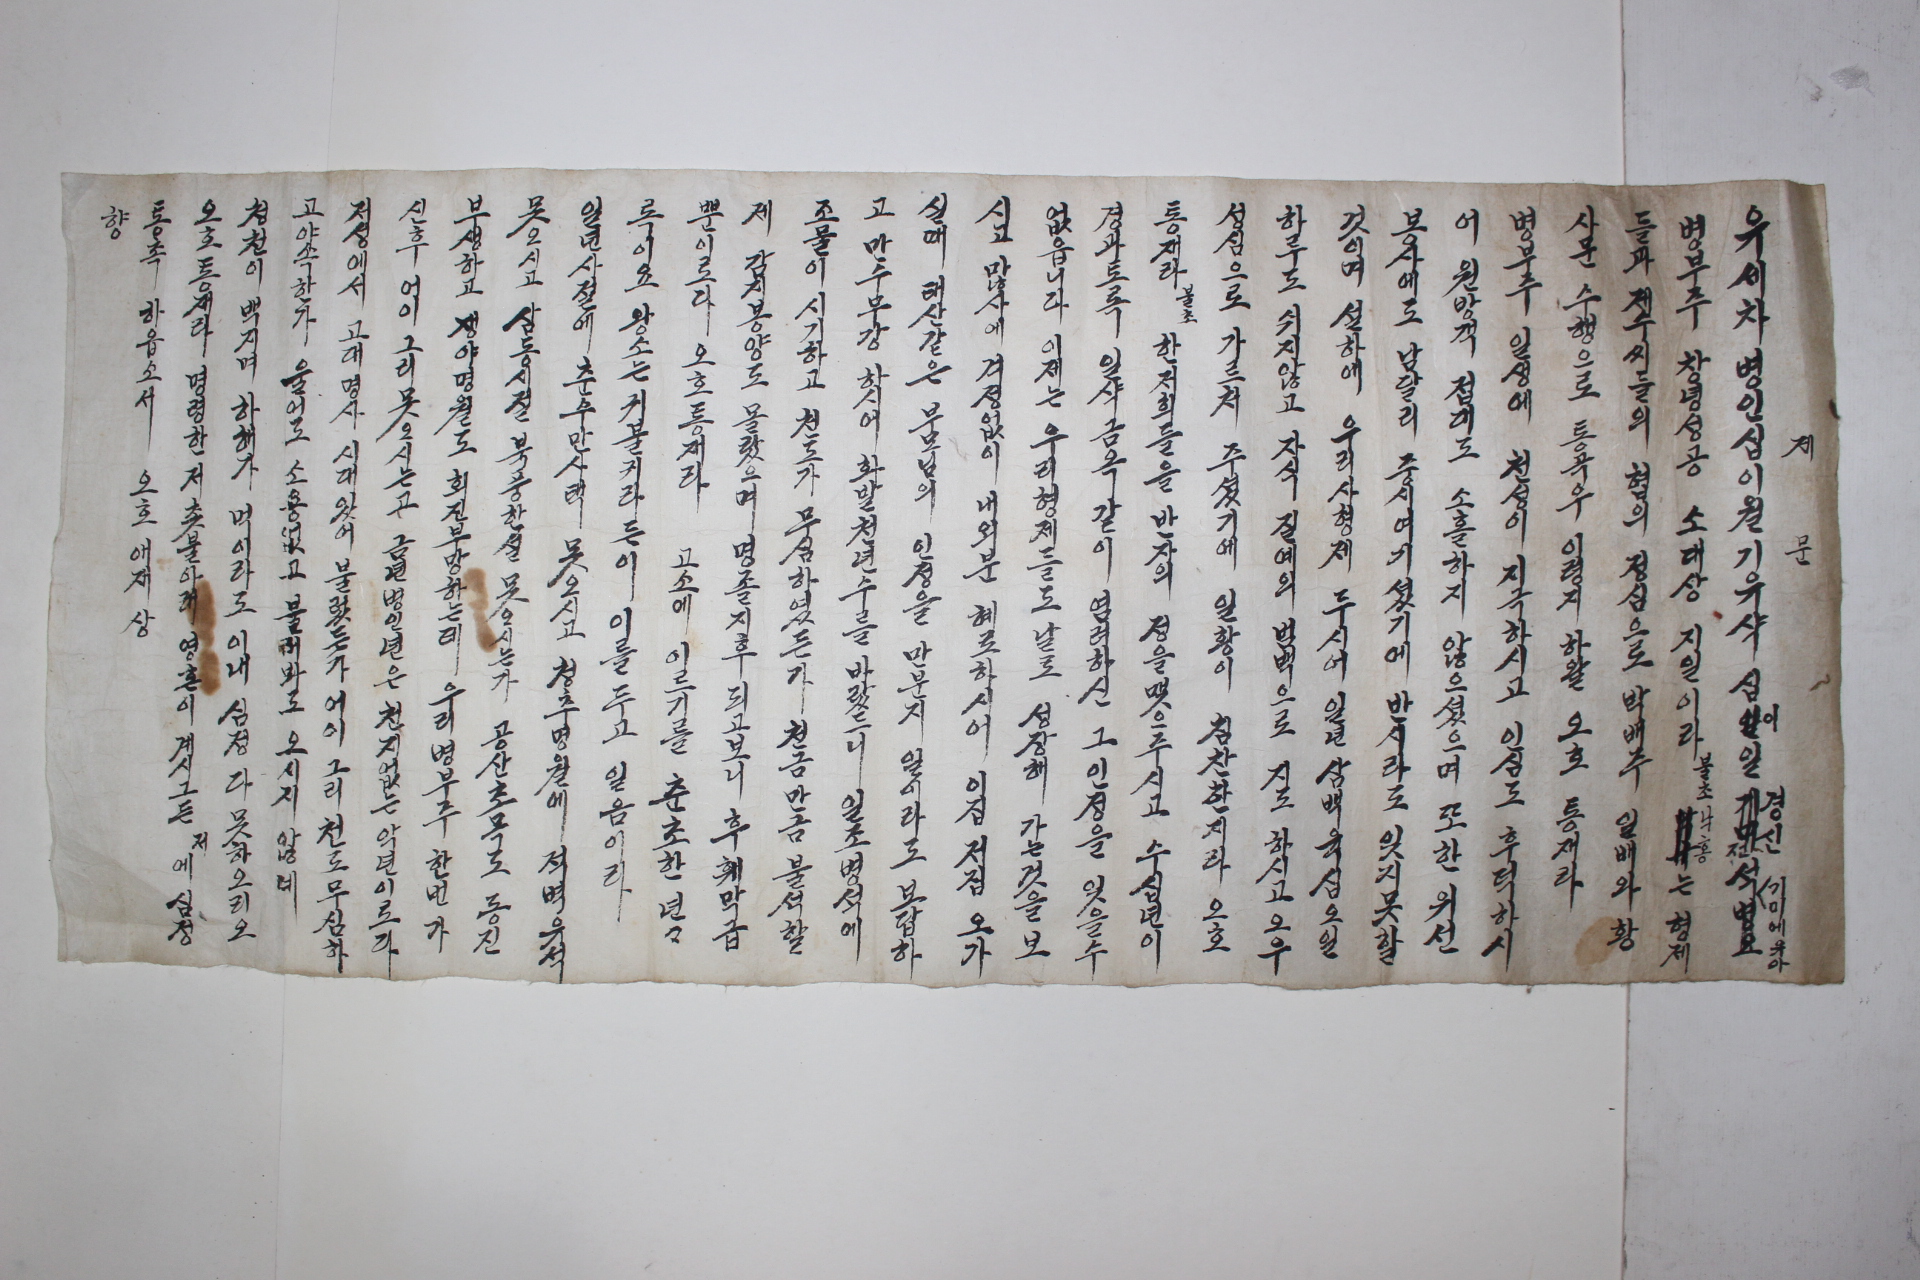 제 문
유세차 병인십이월기유삭 십이일 경신
병부주 창녕성공 소대상 지일이라 불초 나홍 는 형제
들과 젠수씨들의 협의 정심으로 박배주 일배와 황
사문 수행으로 통곡우 이령지 하왈 오호 통재라
병부주 일생에 천성이 지극하시고 인심도 후덕하시
어 원방객 접대도 소흘하지 않으셨으며 또한 위선
봉사에도 남달리 중시여기셨기에 반시라도 잊지못할
것이며 설하에 우리사형제 두시어 일년 삼백육십오일
하루도 쉬지않고 자식 질예의 범백으로 지도하시고 오우
성심으로 가르처 주셨기에 일황이 침찬한지라 오호
통재라 불초 한저희들을 반자의 정을맺으주시고 수십년이
경과토록 일샥금옥 같이 염려하신 그인정을 잊을수
없읍니다 이제는 우리형제들도 날로 성장해 가는것을 보
시고 많사에 걱정없이 내외분 혜로하시어 이집 저집 오가
실때 태산같은 부모님의 인정을 만분지 일이라도 보답하
고 만수무강 하시어 화발천년수를 바랐드니 일조병석에
조물이 시기하고 천도가 무심하였든가 천금만금 불석할
제 감지봉양도 몰랐으며 명졸지후 되고보니 후훼막급
뿐이로다 오호통재라 고소에 이르기를 춘초한 년々
록이요 왕소는 귀불귀라 든이 이를 두고 일음이라
일년사절에 춘수만사택 못오시고 청추명월에 적벽유석
못오시고 삼동시절 북풍한설 못오시는가 공산초목도 동진
부생하고 쟁야명월도 회진부망하는데 우리병부주 한번가
신후 어이 그리못오시는고 금년병인년은 천지없는 악년이로다
저생에서 고대명사 시대있어 불렀든가 어이그리 천도무심하
고야속한가 울어도 소용없고 불러봐도 오시지 않네
청천이 백지며 하해가 먹이라도 이내 심정 다못하오리오
오호통재라 명령한 저촛불아래 영혼이 계시그든 저에심정
통촉 하읍소서 오호애재 상
향